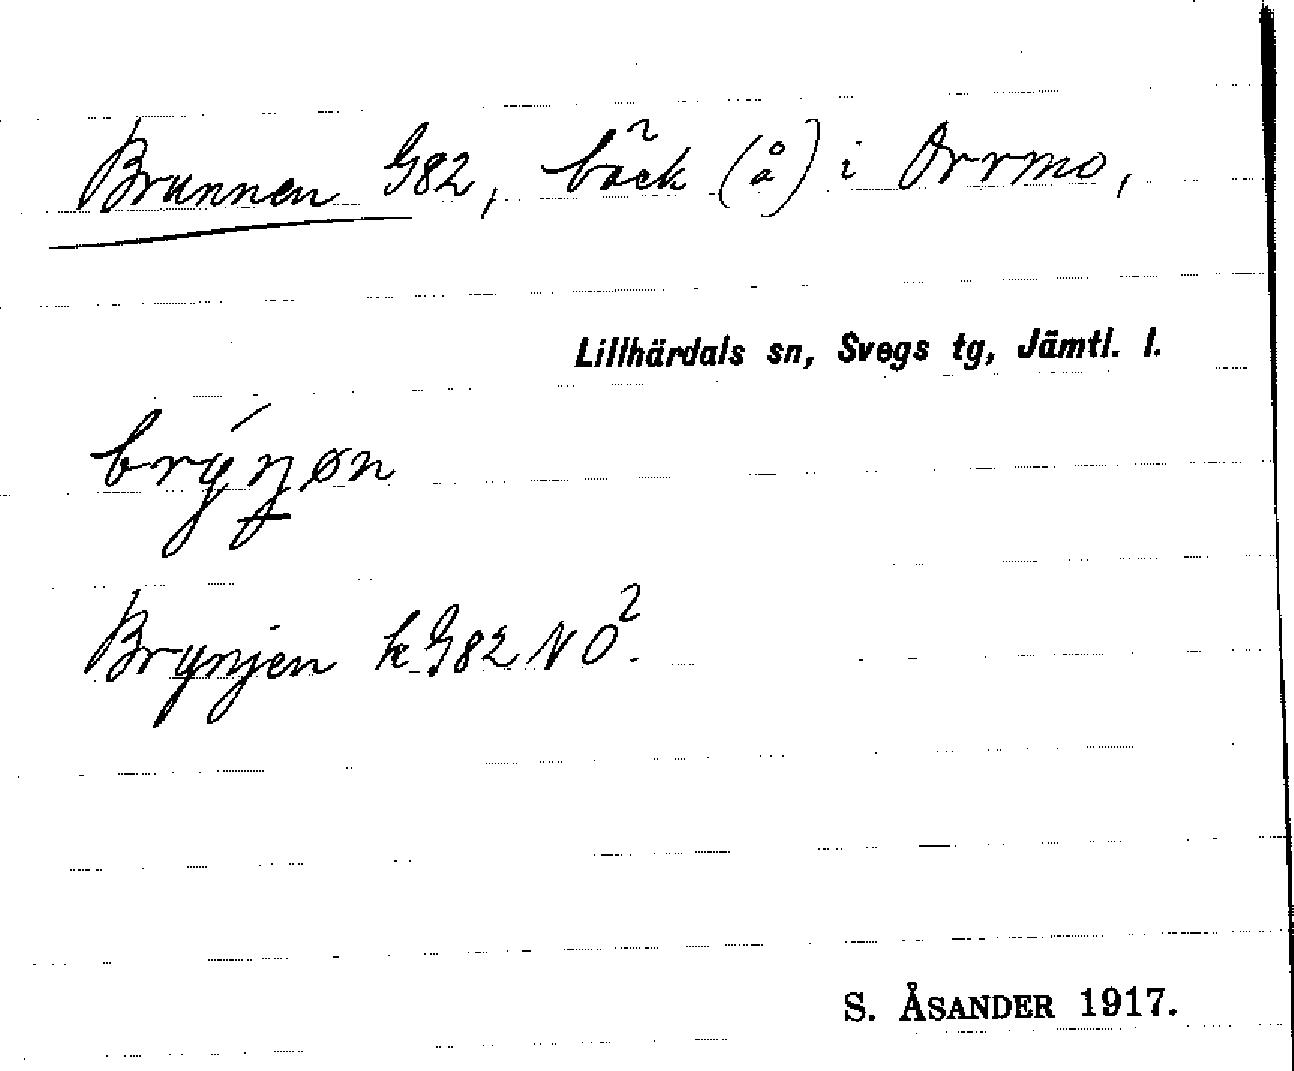 Brunnen G82, bäck (å) i Orrmo,
Lillhärdals sn, Svegs tg, Jämtl. l.
brýŋøn
Brynjen k G82 NO²
S. ÅSANDER 1917.